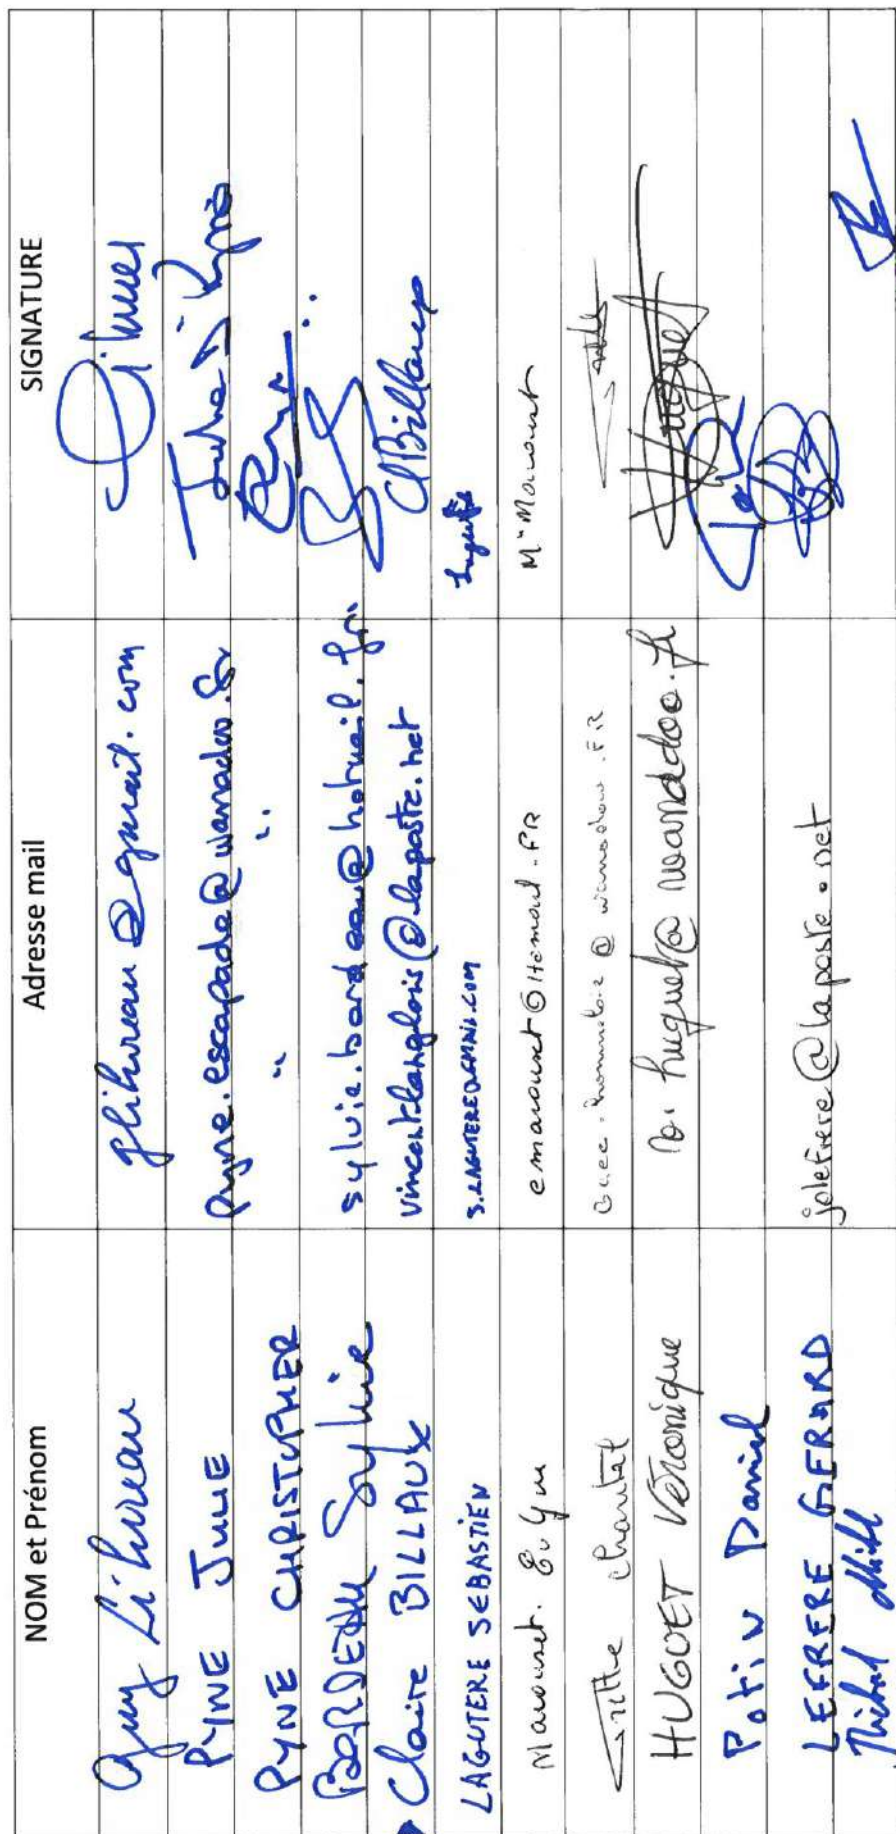 NOM et Prénom Adresse mail SIGNATURE
Guy Lihoreau glihoreau@gmail.com
PYNE JULIE pyne.escapade@wanadoo.fr Julie D Pyne
PYNE CHRISTOPHER " "
BORDEAU Sylvie sylvie.bordeau@hotmail.fr
Claire BILLAUX vincentlanglois@laposte.net CBillaux
LAGUTERE SEBASTIEN S.LAGUTERE@GMAIL.COM
Marounet. emarounet@
chantal @ .FR
HUGUET Véronique v.huguet@wanadoo.fr Huguet
Potin Daniel
LEFRERE GERARD jolefrere@laposte.net